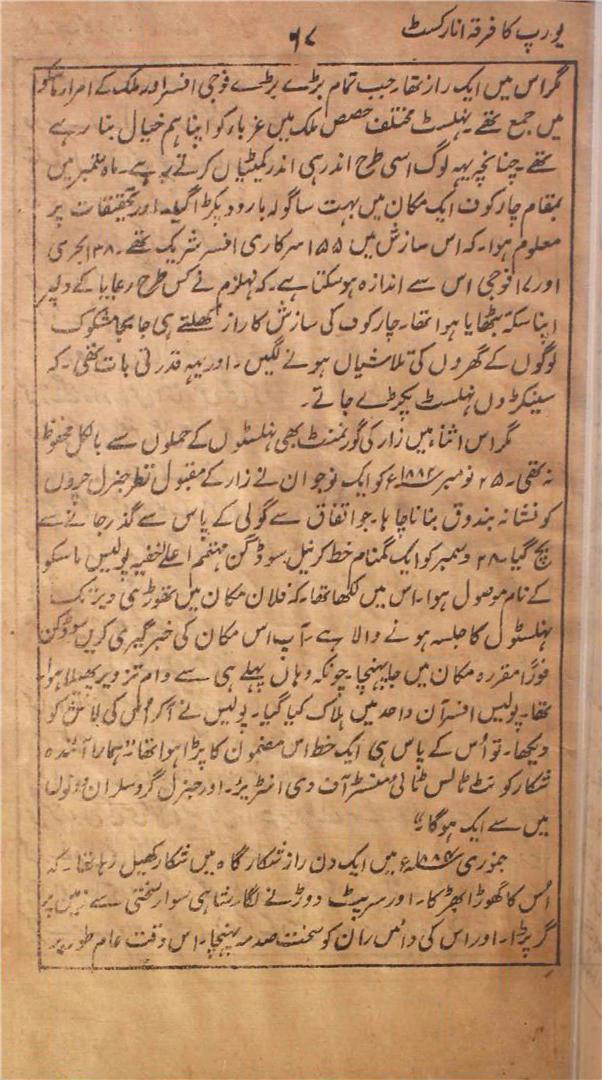 یورپ کا فرقہ انارکسٹ
۶۷
مگر اس میں ایک راز تھا۔ جب تمام بڑے بڑے فوجی افسر اور ملک کے امرا ماسکو
میں جمع تھے۔ نہلسٹ مختلف حصص ملک میں غربا کو اپنا ہم خیال بنا رہے
تھے۔ چنانچہ یہہ لوگ اسی طرح اندر ہی اندر کمیٹیاں کرتے رہے۔ ماہ ستمبر میں
بمقام چارکوف ایک مکان میں بہت سا گولہ بارود پکڑا گیا۔ اور تحقیقات پر
معلوم ہوا۔ کہ اس سازش میں ۱۵۵ سرکاری افسر شریک تھے۔ ۱۳۸ بحری
اور ۱۷ فوجی اس سے اندازہ ہو سکتا ہے۔ کہ نہلزم نے کس طرح رعایا کے دلپر
اپنا سکہ بٹھایا ہوا تھا۔ چارکوف کی سازش کا راز کھلتے ہی جا بجا مشکوک
لوگوں کے گھروں کی تلاشیاں ہونے لگیں۔ اور یہہ قدرتی بات تھی۔ کہ
سینکڑوں نہلسٹ پکڑے جاتے۔
مگر اس اثنا میں زار کی گورنمنٹ بھی نہلسٹوں کے حملوں سے بالکل محفوظ
نہ تھی۔ ۲۵ نومبر کو ایک نوجوان نے زار کے مقبول نظر جنرل
کو نشانہ بندوق بنانا چاہا۔ جو اتفاق سے گولی کے پاس سے گذر جانے سے
بچ گیا۔ ۲۸ دسمبر کو ایک گمنام خط کرنیل سوڈکن مہتمم اعلےٰ خفیہ پولیس ماسکو
کے نام موصول ہوا۔ اس میں لکھا تھا۔ کہ فلان مکان میں تھوڑی دیر تک
نہلسٹوں کا جلسہ ہونے والا ہے۔ آپ اس مکان کی خبر گیری کریں سوڈکن
فوراً مقررہ مکان میں جا پہنچا۔ چونکہ وہاں پہلے ہی سے دام تزویر پھیلا ہوا
تھا۔ پولیس افسر آن واحد میں ہلاک کیا گیا۔ پولیس نے آکر اُس کی لاش کو
دیکھا۔ تو اُس کے پاس ہی ایک خط اس مضمون کا پڑا ہوا تھا "ہمارا آئندہ
شکار کونٹ ٹالس ٹائی منسٹر آف دی انٹریر۔ اور جنرل گروسلر ان دونوں
میں سے ایک ہوگا"
جنوری میں ایک دن زار شکار گاہ میں شکار کھیل رہا تھا۔ کہ
اُس کا گھوڑا بھڑکا۔ اور سرپٹ دوڑنے لگا۔ شاہی سوار سختی سے زمین پر
گر پڑا۔ اور اس کی دائیں ران کو سخت صدمہ پہنچا۔ اس وقت عام طور پر